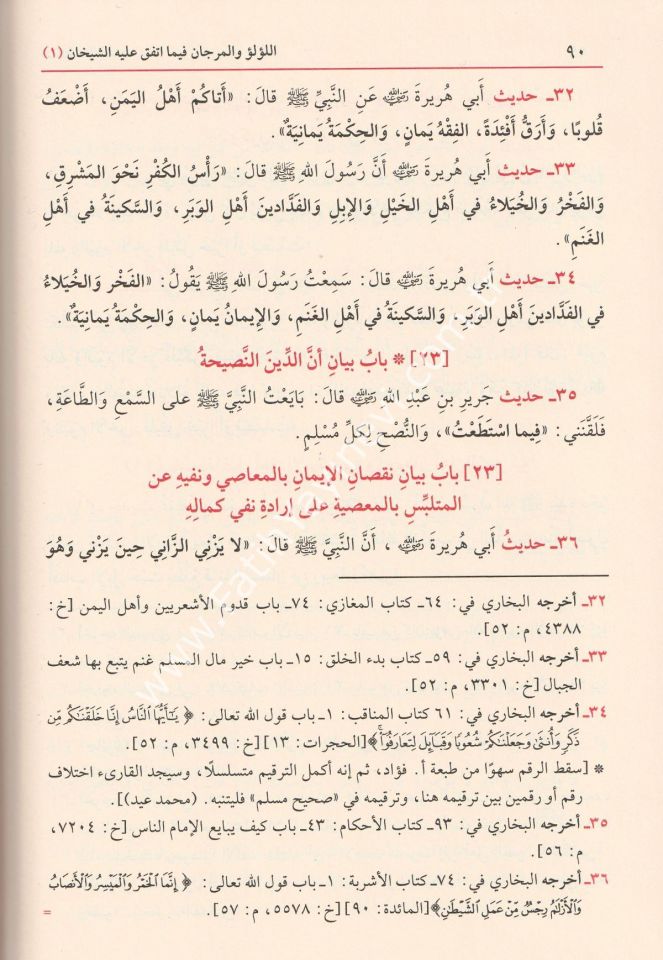 ٩٠ اللؤلؤ والمرجان فيما اتفق عليه الشيخان (١)
٣٢ـ حديث أَبي هُريرةَ رضي الله عنه عَنِ النَّبِيِّ ﷺ قالَ: «أَتاكُمْ أَهْلُ اليَمَنِ، أَضْعَفُ
قُلوبًا، وَأَرَقُّ أَفْئِدَةً، الفِقْهُ يَمانٍ، وَالحِكْمَةُ يَمانِيَةٌ».
٣٣ـ حديث أَبي هُريرةَ رضي الله عنه أَنَّ رَسُولَ اللهِ ﷺ قالَ: «رَأْسُ الكُفْرِ نَحْوَ المَشْرِقِ،
وَالفَخْرُ وَالخُيَلاءُ في أَهْلِ الخَيْلِ وَالإِبِلِ وَالفَدَّادينَ أَهْلِ الوَبَرِ، وَالسَّكينَةُ في أَهْلِ
الغَنَمِ».
٣٤ـ حديث أَبي هُريرةَ رضي الله عنه قالَ: سَمِعْتُ رَسُولَ اللهِ ﷺ يَقُولُ: «الفَخْرُ وَالخُيَلاءُ
في الفَدَّادينَ أَهْلِ الوَبَرِ، وَالسَّكينَةُ في أَهْلِ الغَنَمِ، وَالإِيمانُ يَمانٍ، وَالحِكْمَةُ يَمانِيَةٌ».
[٢٣] * بابُ بيانِ أَنَّ الدِّينَ النَّصيحةُ
٣٥ـ حديث جَريرِ بنِ عَبْدِ اللهِ رضي الله عنه قالَ: بَايَعْتُ النَّبِيَّ ﷺ على السَّمْعِ وَالطَّاعَةِ،
فَلَقَّنَني: «فِيما اسْتَطَعْتُ»، وَالنُّصْحِ لِكلِّ مُسْلِمٍ.
[٢٣] بابُ بيانِ نقصانِ الإِيمانِ بالمعاصي ونفيهِ عن
المتلبِّسِ بالمعصيةِ على إِرادةِ نفي كمالِهِ
٣٦ـ حديثُ أَبي هُريرةَ رضي الله عنه، أَنَّ النَّبِيَّ ﷺ قالَ: «لا يَزْني الزَّاني حِينَ يَزْني وَهُوَ
٣٢ـ أخرجه البخاري في: ٦٤ـ كتاب المغازي: ٧٤ـ باب قدوم الأشعريين وأهل اليمن [خ:
٤٣٨٨، م: ٥٢].
٣٣ـ أخرجه البخاري في: ٥٩ـ كتاب بدء الخلق: ١٥ـ باب خير مال المسلم غنم يتبع بها شعف
الجبال [خ: ٣٣٠١، م: ٥٢].
٣٤ـ أخرجه البخاري في: ٦١ كتاب المناقب: ١ـ باب قول الله تعالى: ﴿ يَٰٓأَيُّهَا ٱلنَّاسُ إِنَّا خَلَقْنَٰكُم مِّن
ذَكَرٍ وَأُنثَىٰ وَجَعَلْنَٰكُمْ شُعُوبًا وَقَبَآئِلَ لِتَعَارَفُوٓا۟ۚ﴾ [الحجرات: ١٣] [خ: ٣٤٩٩، م: ٥٢].
* [سقط الرقم سهوًا من طبعة أ. فؤاد، ثم إنه أكمل الترقيم متسلسلًا، وسيجد القارىء اختلاف
رقم أو رقمين بين ترقيمه هنا، وترقيمه في «صحيح مسلم» فليتنبه. (محمد عيد)].
٣٥ـ أخرجه البخاري في: ٩٣ـ كتاب الأحكام: ٤٣ـ باب كيف يبايع الإمام الناس [خ: ٧٢٠٤،
م: ٥٦].
٣٦ـ أخرجه البخاري في: ٧٤ـ كتاب الأشربة: ١ـ باب قول الله تعالى: ﴿ إِنَّمَا ٱلْخَمْرُ وَٱلْمَيْسِرُ وَٱلْأَنصَابُ
وَٱلْأَزْلَٰمُ رِجْسٌ مِّنْ عَمَلِ ٱلشَّيْطَٰنِ﴾ [المائدة: ٩٠] [خ: ٥٥٧٨، م: ٥٧]. =